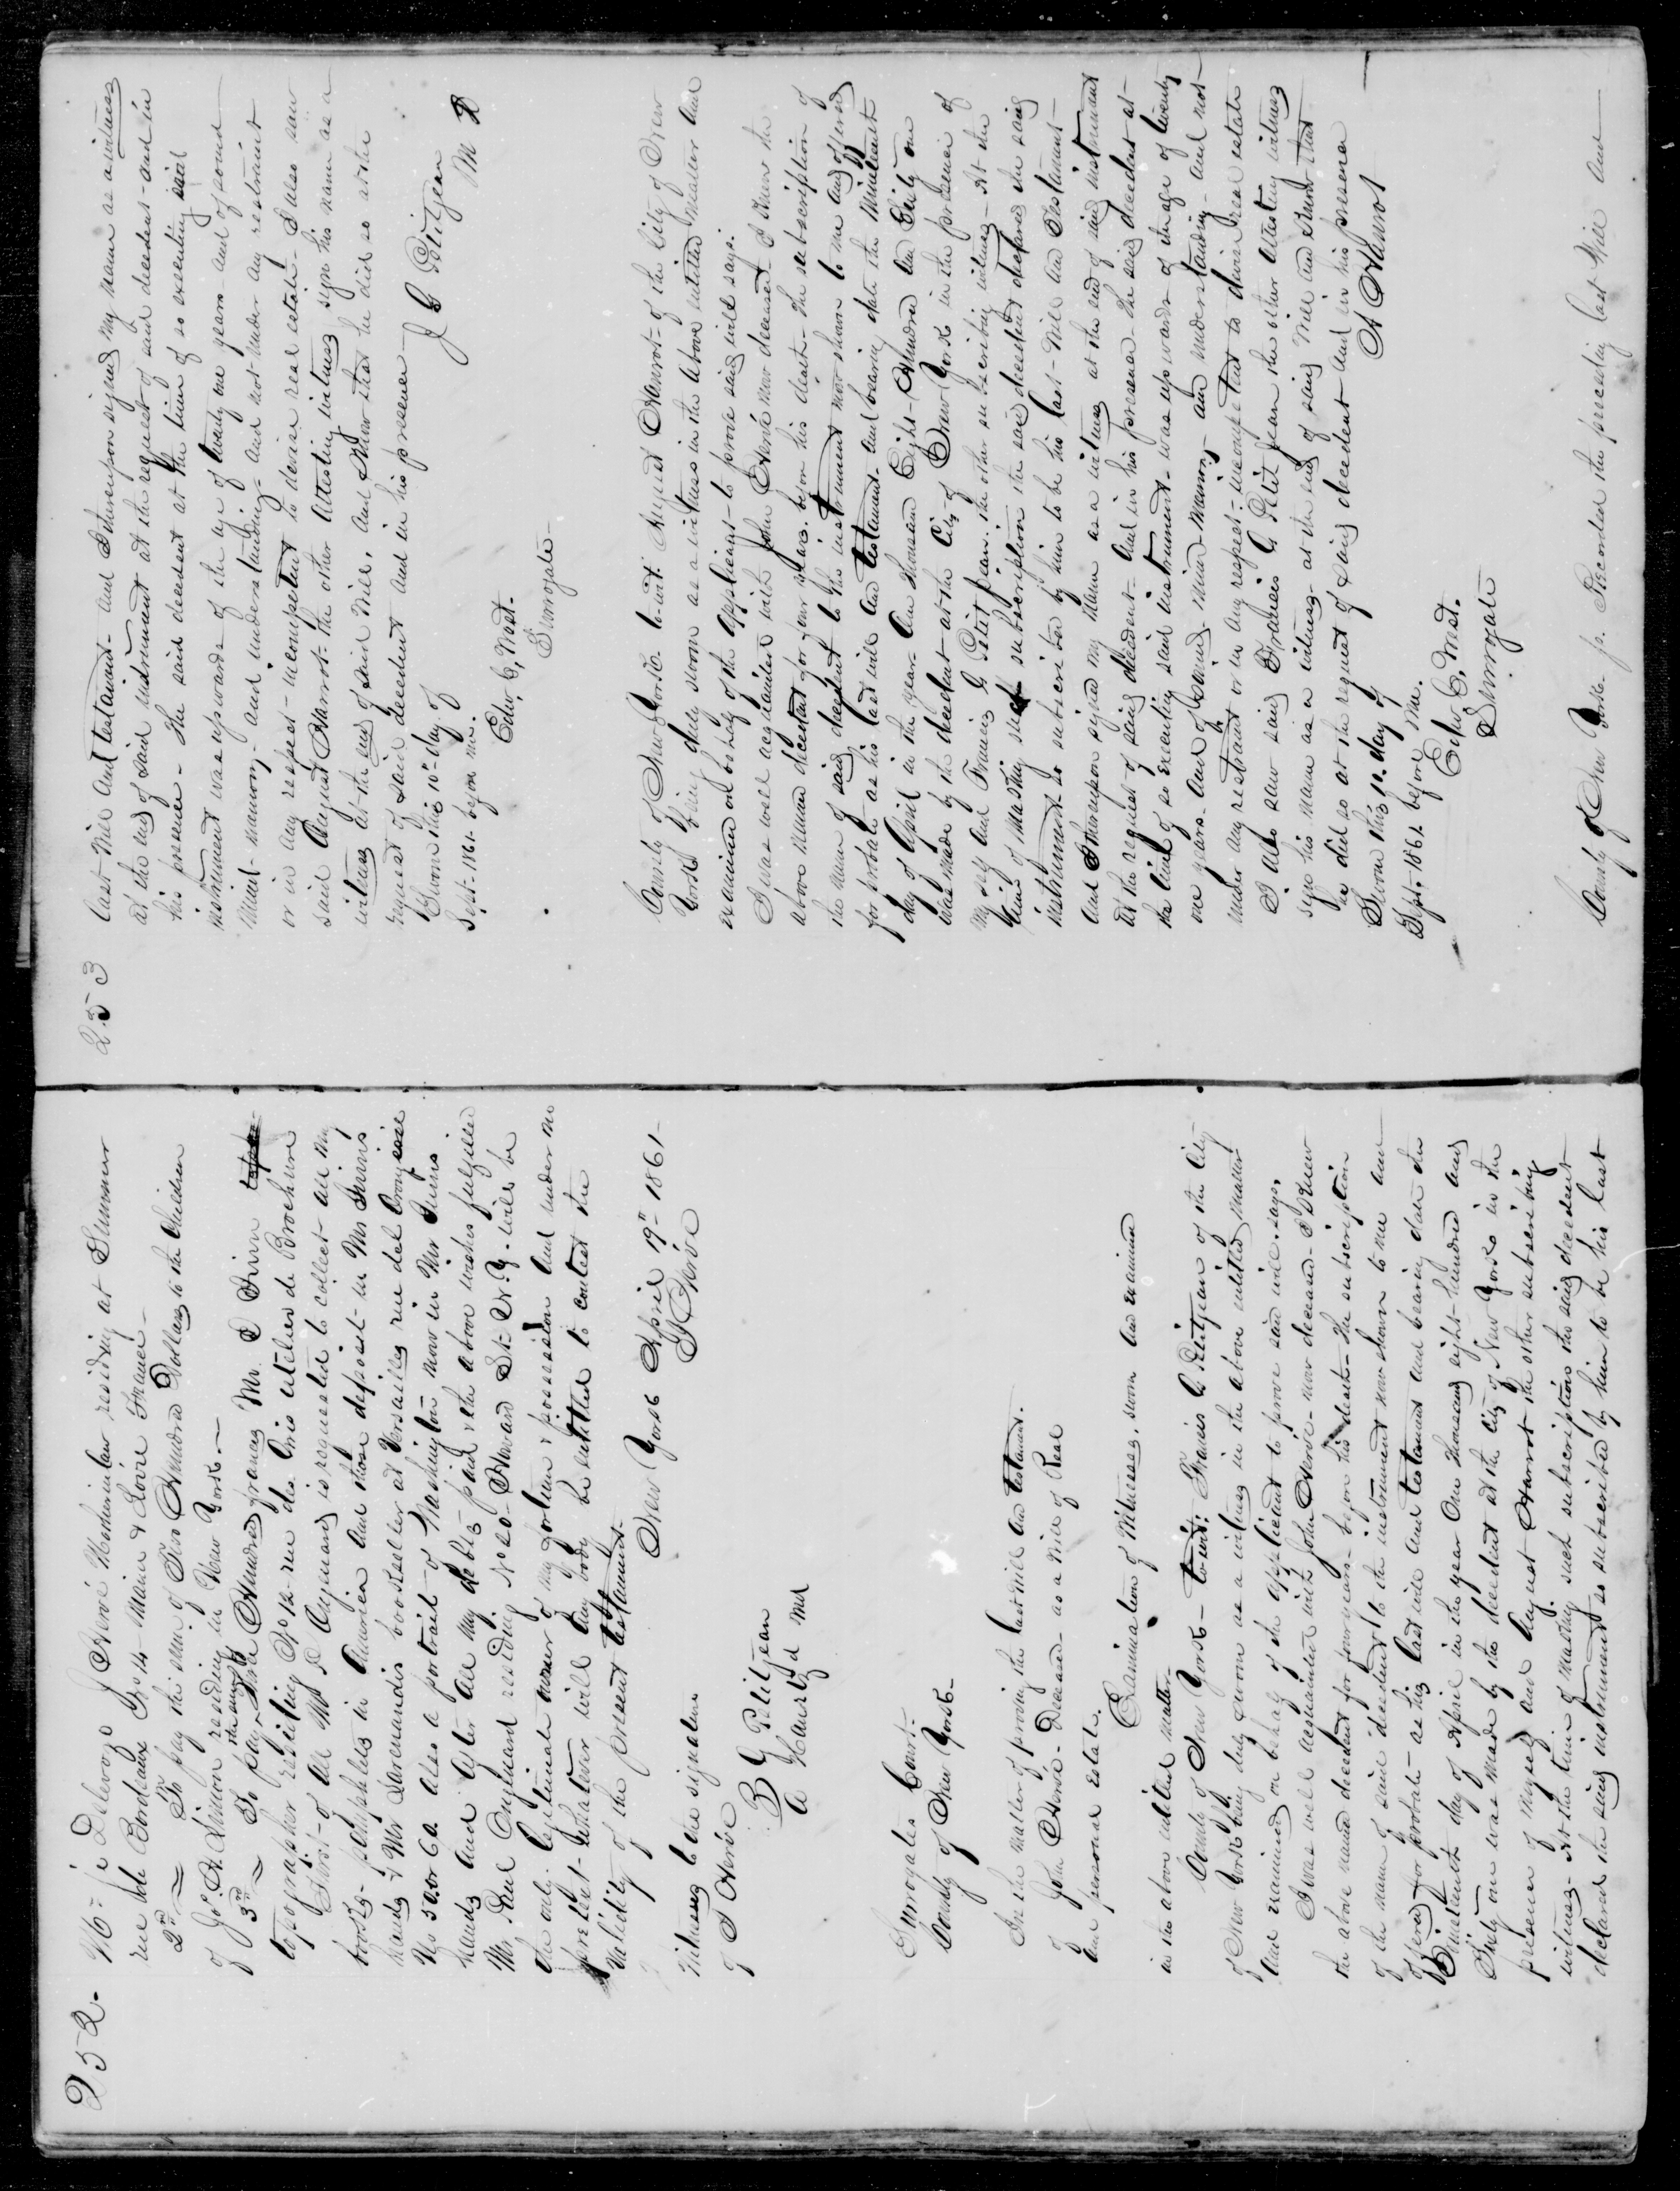 252.
Mr. J. Delevoye J Hervé Mother in law residing at Summer
rue de Bordeaux No 14 Maine & Loire France —
2nd To pay the sum of Two Hundred Dollars to the Children
of Jos. A. Simon residing in New York. —
3rd To pay the sum of Hundred francs Mr. D
topographer residing No 12 rue des Trois
First of all Mr D Oxquard is requested to collect all my
books - pamphlets in America and those deposit in Mr
hands & Mr Larenaudis bookseller at Versailles rue del
No 58 or 60. Also a portrait of Washington now in Mr
hands And After All my debts paid & the above wishes fulfilled
Mr Paul Oxquard residing No 20 Howard St. N. Y. will be
the only legitimate owner of my fortune & possession And under no
pretext whatever will Any body be entitled to contest the
validity of the present testament.
New York April 19" 1861
J Hervé
Witnesses to the signature
of J Hervé
G Petitjean
A Harrot md
Surrogates Court.
County of New York.
In the matter of proving the last will and testament
of John Hervé - Deceased - as a Will of Real
and personal estate.
Examination of Witnesses, sworn and examined
in the above entitled matter.
County of New York - to wit: Francis G Petitjean of the City
of New York being duly sworn as a witness in the above entitled matter
and examined on behalf of the applicant to prove said will. says.
I was well acquainted with John Hervé - now deceased - I Knew
the above named decedent for four years - before his death - the subscription
of the name of said decedent to the instrument now shown to me and
offered for probate - as his last will and testament and bearing date the
Nineteenth day of April in the year One thousand eight hundred and
Sixty one was made by the decedent at the City of New York in the
presence of myself and August Harrot the other subscribing
witness - At the time of making such subscription the said decedent
declared the said instrument so subscribed by him to be his last
253
last Will And testament - And I thereupon signed my name as a witness
at the end of said instrument at the request of said decedent - and in
his presence - The said decedent at the time of so executing said
instrument was upwards of the age of twenty one years - and of sound
Mind - memory - and understanding - and not under any restraint
or in any respect - incompetent to devise real estate - I also saw
said August Harrot - the other Attesting witness sign his name as a
witness at the end of said Will, And Know that he did so at the
request of said decedent and in his presence —
Sworn this 10" day of
Sept - 1861 - before me.
J G Petitjean
M D
Edw. C. West.
Surrogate.
County of New York. to wit: August Harrot - of the City of New
York being duly sworn as a witness in the above entitled matter and
examined on behalf of the applicant - to prove said will says:
I was well acquainted with John Hervé now deceased I Knew the
above named decedent for four years. before his death - The subscription of
the name of said decedent to the instrument now shown to me and offered
for probate as his last will and testament - and bearing date the Nineteenth
day of April in the year One thousand Eight-Hundred and Sixty one
was made by the decedent - at the City of New York in the presence of
myself and Francis G Petitjean. the other subscribing witness - At the
time of making such subscription the said decedent declared the said
instrument so subscribed by him to be his last - Will and Testament -
And I thereupon signed my name as a witness at the end of said instrument
at the request of said decedent - and in his presence - The said decedent at -
the time of so executing said instrument - was upwards of the age of twenty
one years - And of sound - mind - memory - and understanding - And not
under any restraint or in any respect - incompetent to devise real estate
I Also saw said Francis G Petitjean the other Attesting witness
sign his name as a witness - at the end of said Will and Know that
he did so at the request of said decedent and in his presence
Sworn this 10. day of
Sept. 1861. before Me.
A Harrot
Edw C. West.
Surrogate
County of New York. ss. Recorded the preceding last Will and